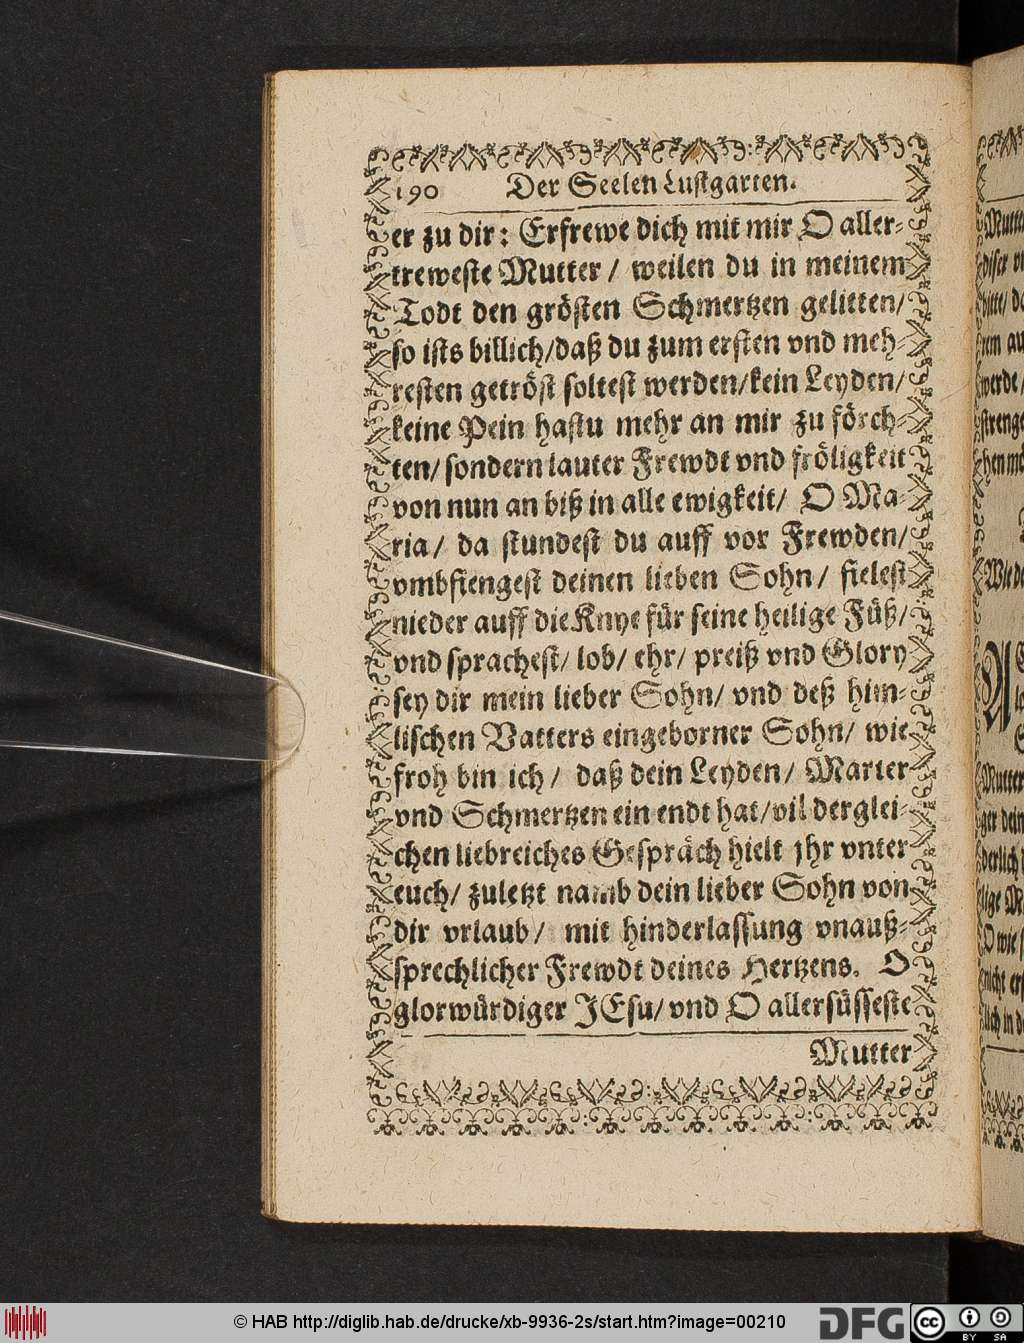 190 Der Seelen Lustgarten.
er zu dir: Erfrewe dich mit mir O aller-
treweste Mutter / weilen du in meinem
Todt den grösten Schmertzen gelitten/
so ists billich/daß du zum ersten vnd meh-
resten getröst soltest werden/kein Leyden/
keine Pein hastu mehr an mir zu förch-
ten/ sondern lauter Frewdt vnd fröligkeit
von nun an biß in alle ewigkeit/ O Ma-
ria/ da stundest du auff vor Frewden/
vmbfiengest deinen lieben Sohn/ fielest
nieder auff die Knye für seine heilige Füß/
vnd sprachest/ lob/ ehr/ preiß vnd Glory
sey dir mein lieber Sohn/ vnd deß him-
lischen Vatters eingeborner Sohn/ wie
froh bin ich / daß dein Leyden/ Marter
vnd Schmertzen ein endt hat/vil derglei-
chen liebreiches Gespräch hielt jhr vnter
euch/ zuletzt namb dein lieber Sohn von
dir vrlaub/ mit hinderlassung vnauß-
sprechlicher Frewdt deines Hertzens. O
glorwürdiger JEsu/ vnd O allersüsseste
Mutter
© HAB http://diglib.hab.de/drucke/xb-9936-2s/start.htm?image=00210
DFG
cc
BY SA